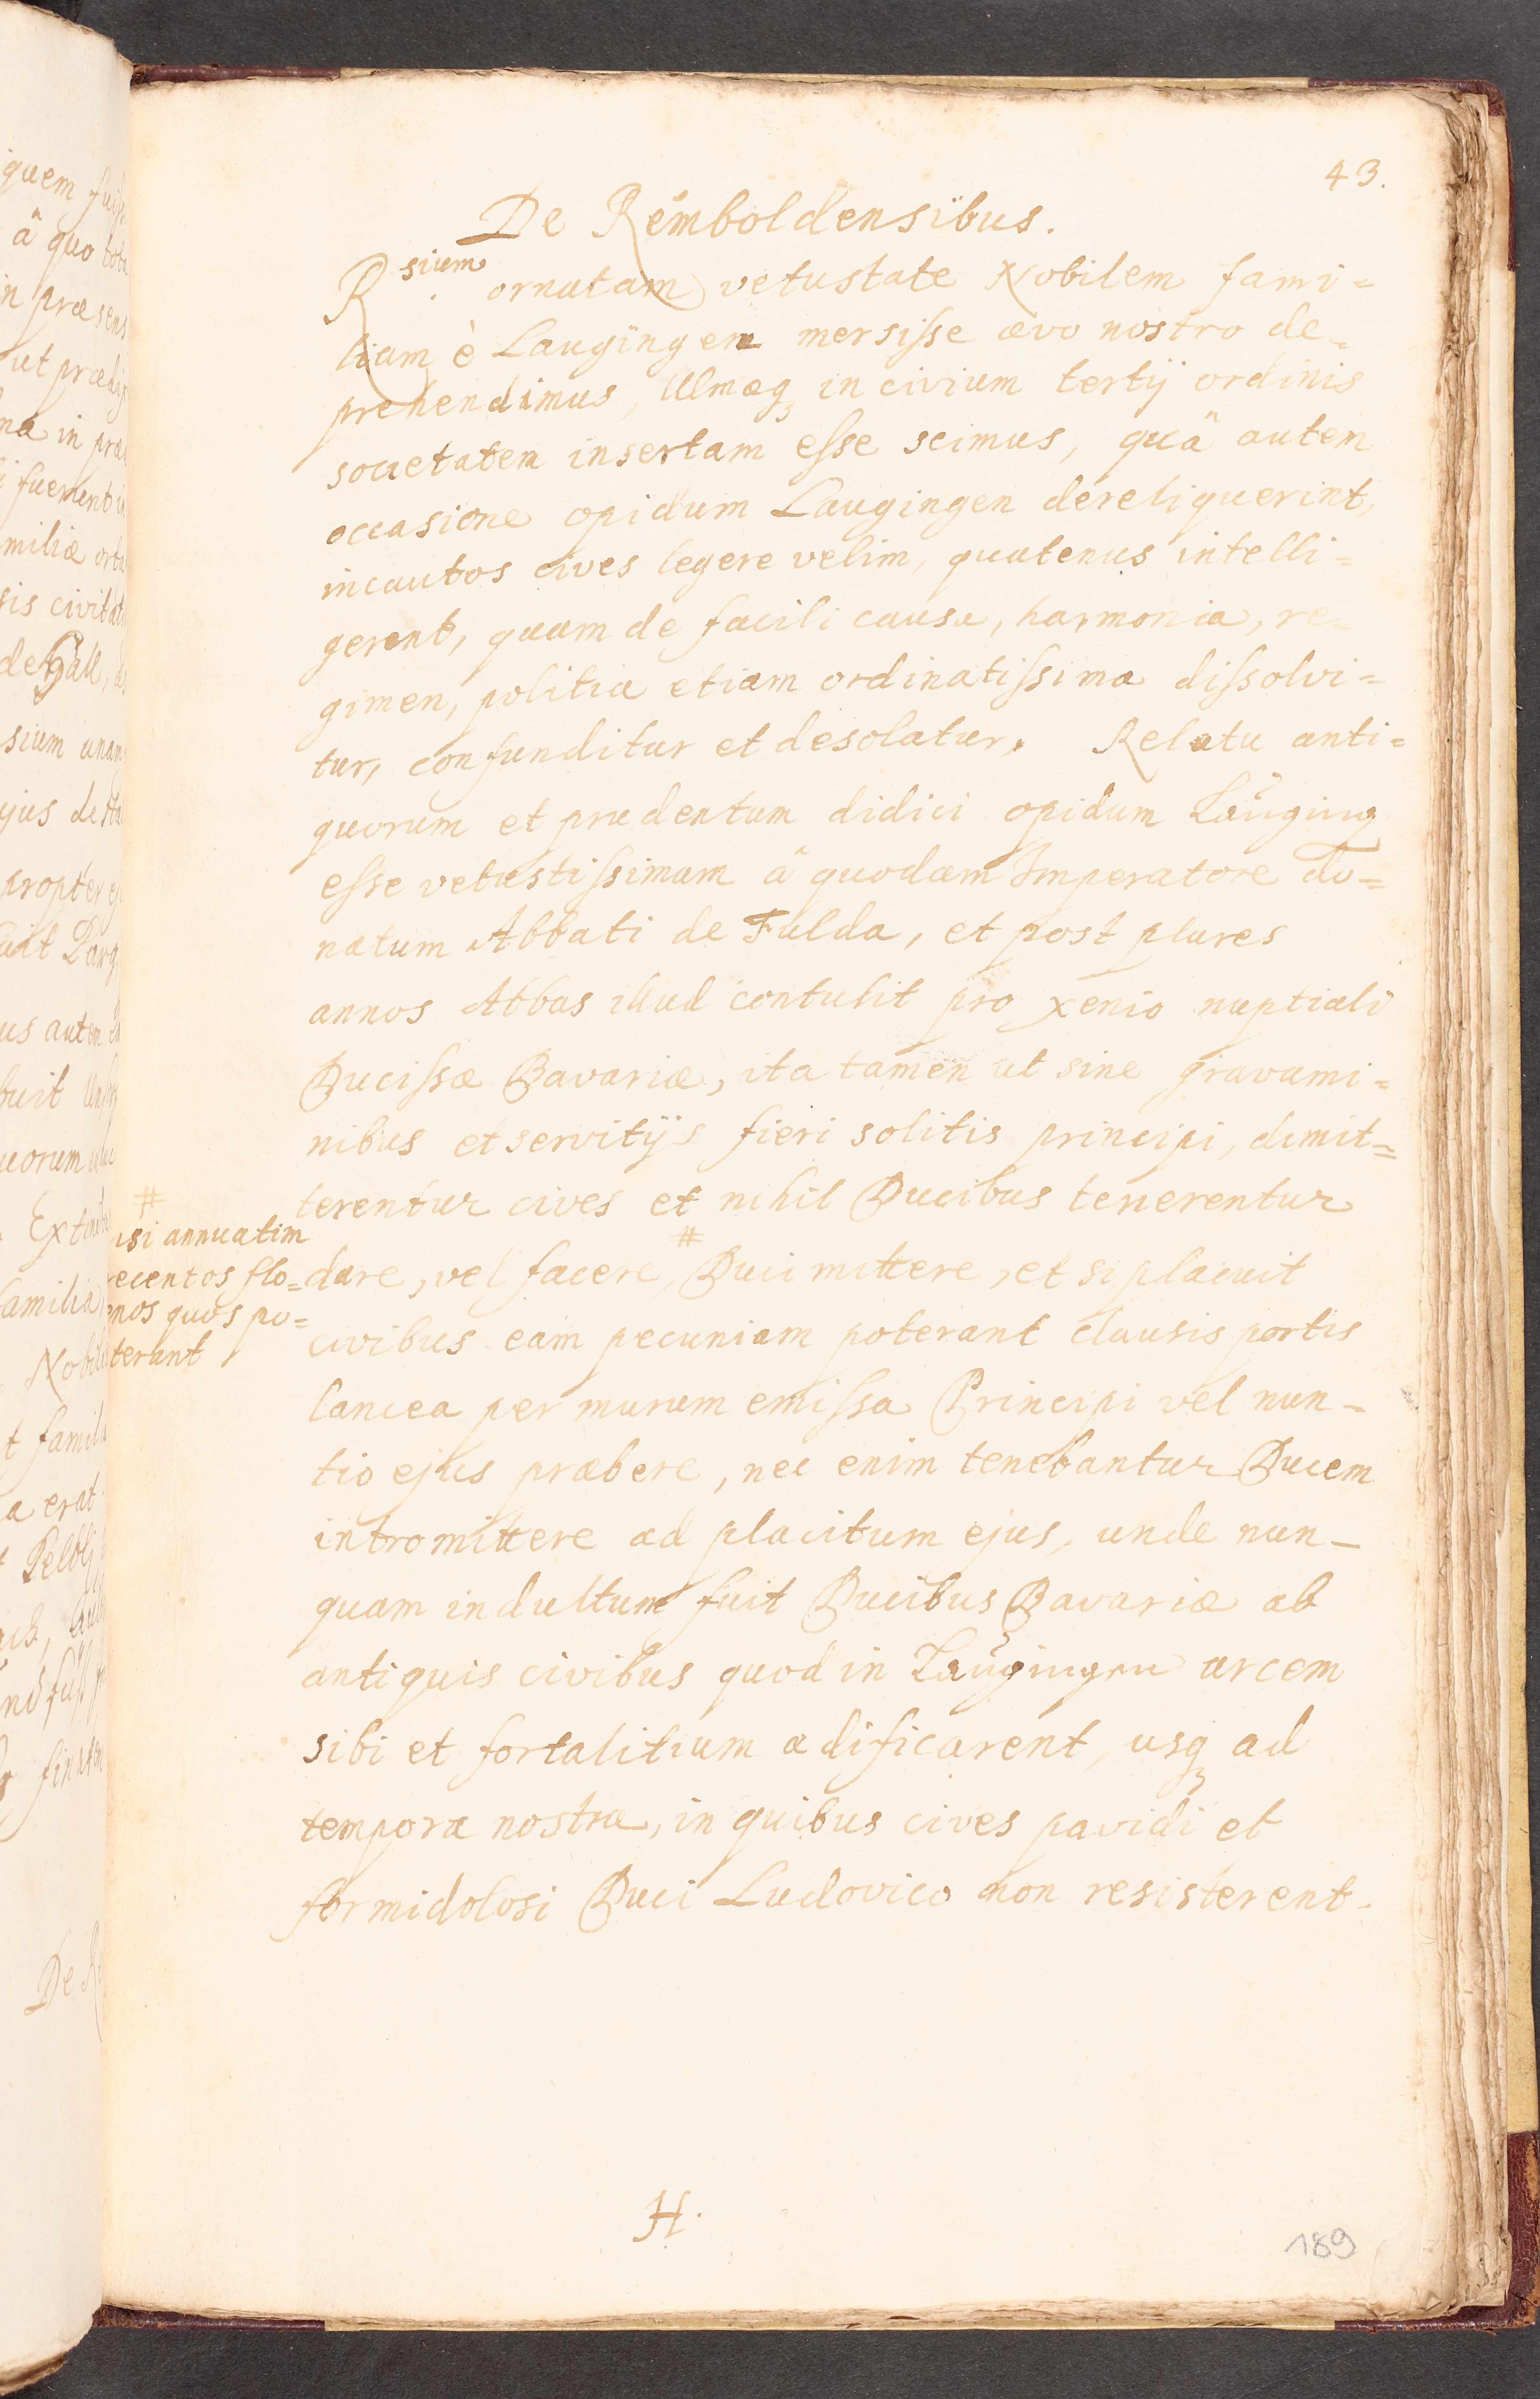 43.
De Remboldensibus.
R.sium ornatam vetustate Nobilem fami=
liam è Laugingen mersisse ævo nostro de=
prehendimus, Ulmæq in civium tertij ordinis
societatem insertam esse scimus, quâ autem
occasione opidum Laugingen dereliquerint,
incautos cives legere velim, quatenus intelli=
gerent, quam de facili causa, harmonia, re=
gimen, politia etiam ordinatissima dissolvi=
tur, confunditur et desolatur. Relatu anti=
quorum et prudentum didici opidum Lauging
esse vetustissimum â quodam Imperatore do=
natum Abbati de Fulda, et post plures
annos Abbas illud contulit pro xenio nuptiali
Ducissæ Bavariæ, ita tamen ut sine gravami=
nibus et servitijs fieri solitis principi, dimit=
terentur cives et nihil Ducibus tenerentur
#
dare, vel facere, Duci mittere, et si placuit
civibus eam pecuniam poterant clausis portis
lancea per murum emissa Principi vel nun=
tio ejus præbere, nec enim tenebantur Ducem
intromittere ad placitum ejus, unde nun=
quam indultum fuit Ducibus Bavariæ ab
antiquis civibus quod in Laugingen arcem
sibi et fortalitium ædificarent, usq ad
tempora nostra, in quibus cives pavidi et
formidolosi Duci Ludovico non resisterent.
#
isi annuatim
recentos flo=
enos quos po=
terant
H.
189
quem
â quo
in præsens
ut
na in
fuerunt
miliæ
sis
de Hall,
sium
jus
propter
us autem
buit
uorum
familia
t
a erat
De